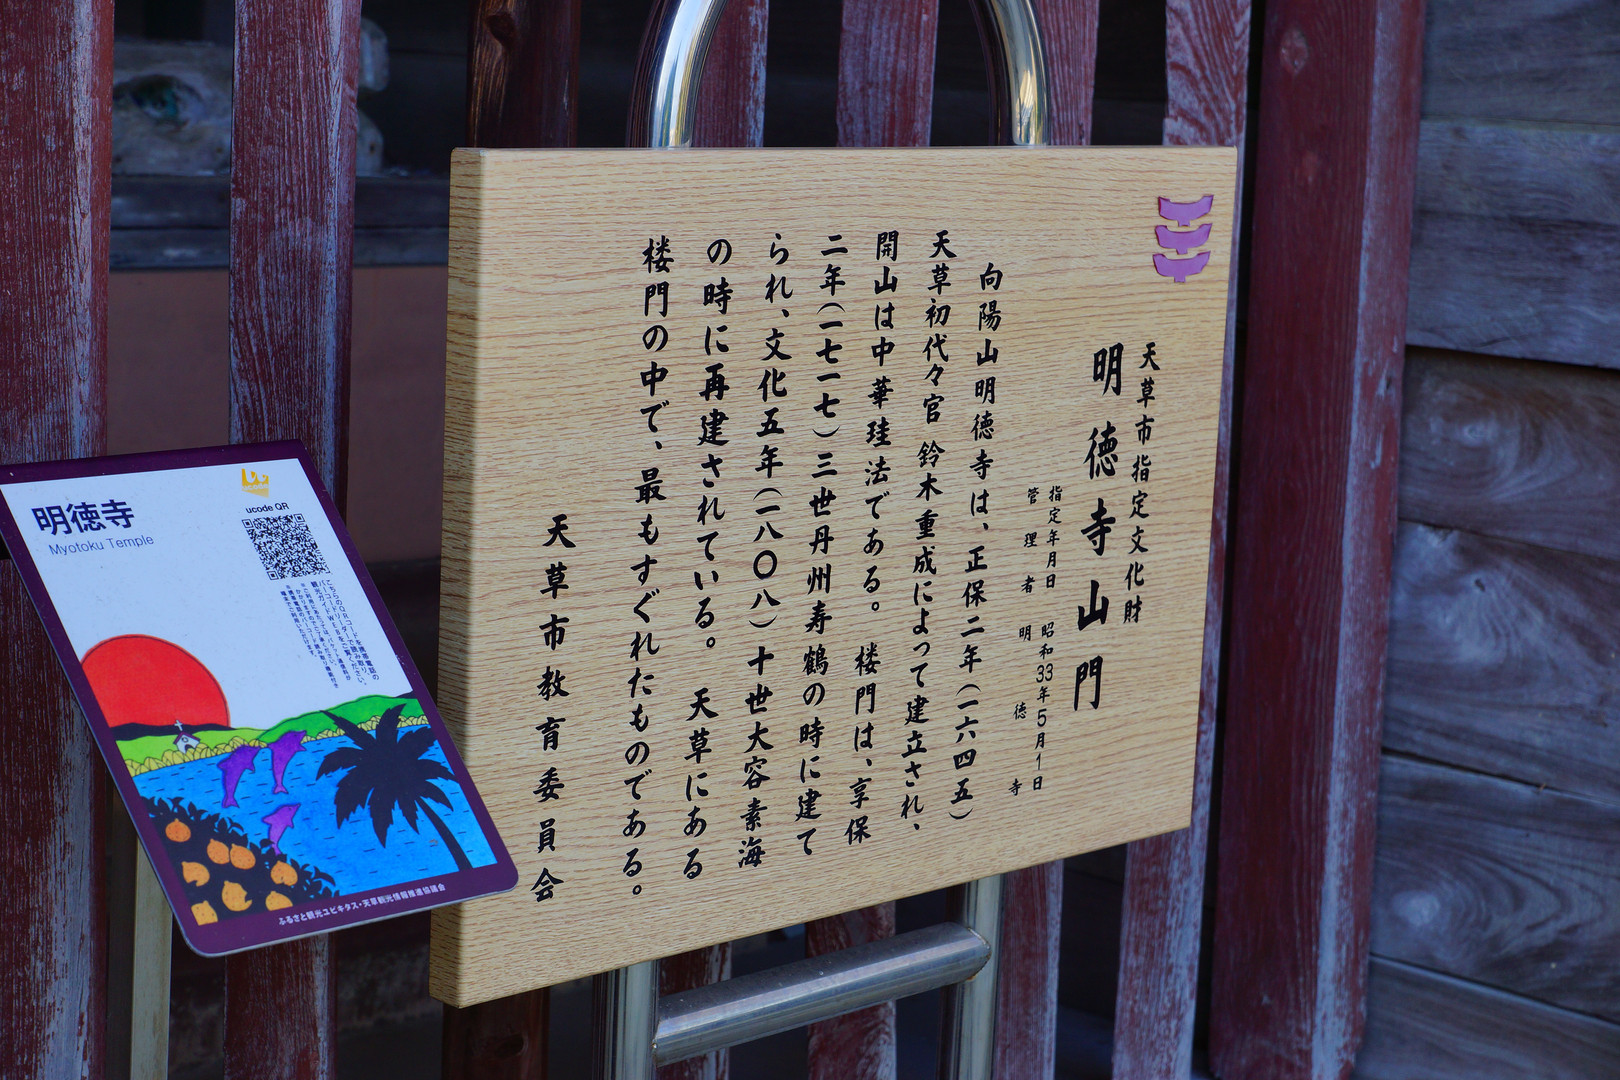 天草市指定文化財
明徳寺山門
指定年月日 昭和33年5月1日
管理者 明徳寺
向陽山明徳寺は、正保二年(一六四五)
天草初代々官 鈴木重成によって建立され、
開山は中華珪法である。 楼門は、享保
二年(一七一七)三世丹州寿鶴の時に建て
られ、文化五年(一八〇八)十世大容素海
の時に再建されている。 天草にある
楼門の中で、最もすぐれたものである。
天草市教育委員会
明徳寺
Myotoku Temple
ucode QR
こちらのQRコードを携帯電話の
バーコードリーダーで読み取り、
観光ガイドWEBをご覧ください。
ふるさと観光ユビキタス・天草観光情報推進協議会